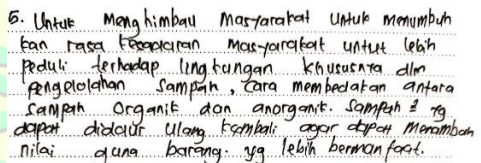 5. Untuk Menghimbau Masyarakat Untuk Menumbuh
kan rasa kesadaran Masyarakat untuk lebih
peduli terhadap lingkungan khususnya dlm
pengelolahan sampah, cara membedakan antara
sampah organik dan anorganik. sampah² yg
dapat didaur ulang kembali agar dapat Menambah
nilai guna barang. yg lebih bermanfaat.